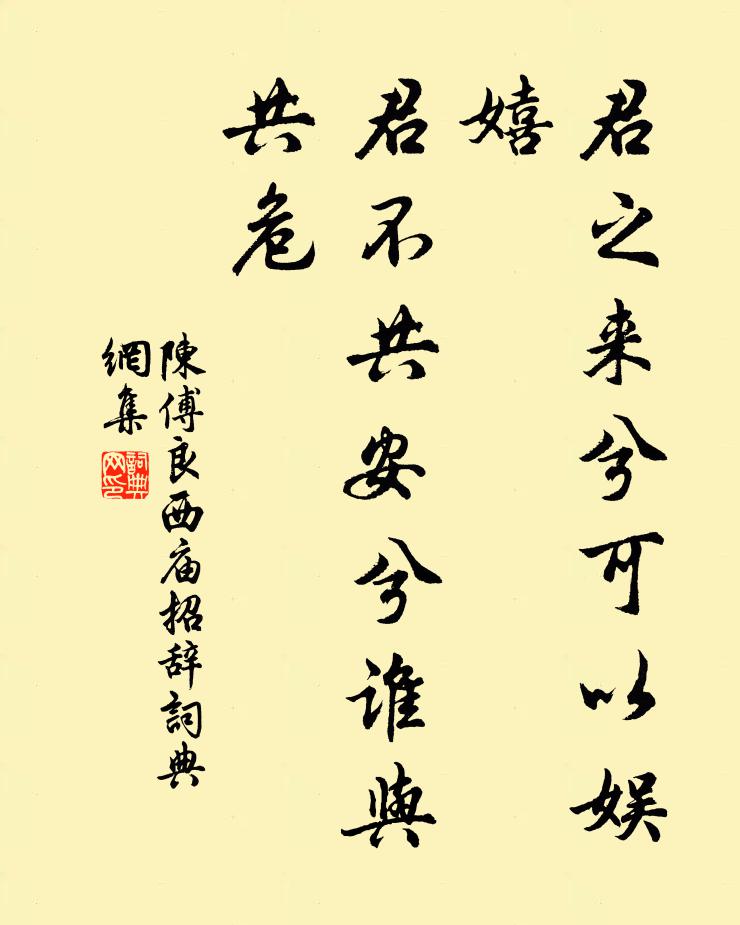 君之来兮可以娱
嬉
君不共安兮谁與
共危
陳傅良西庙招辞詞典
網集
詞典
网印